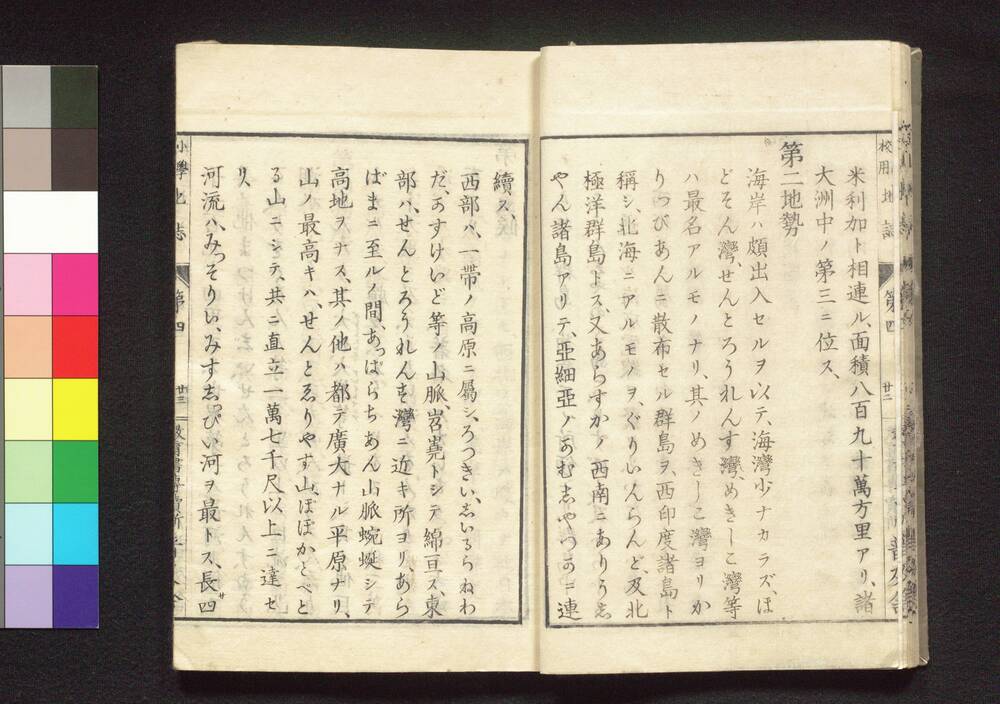 米利加ト相連ル、面積八百九十萬方里アリ、諸
大洲中ノ第三ニ位ス、
第二地勢
海岸ハ頗出入セルヲ以テ、海灣少ナカラズ、ほ
どそん灣、せんとろうれんす灣、めきしこ灣等
ハ最名アルモノナリ、其ノめきしこ灣ヨリか
りつびあんニ散布セル群島ヲ、西印度諸島ト
稱シ、北海ニアルモノヲ、ぐりいんらんど、及北
極洋群島トス、又あらすかノ西南ニありうし
やん諸島アリテ、亞細亞ノ
續ス、
西部ハ、一帶ノ高原ニ屬シ、ろつきい、しいるらねわ
だ、かすけいど等ノ山脈、岧嶤トシテ綿亘ス、東
部ハ、せんとろうれんす灣ニ近キ所ヨリ、あら
ばまニ至ルノ間、あつぱらちあん山脈蜿蜒シテ
高地ヲナス、其ノ他ハ都テ廣大ナル平原ナリ、
山ノ最高キハ、せんとゑりやす山、ぽぽかとぺと
る山ニシテ、共ニ直立一萬七千尺以上ニ達セ
リ、
河流ハ、みつそりい、みすしつぴい河ヲ最トス、長サ四
小學地誌
第四
廿三
校用地誌
第四
廿二